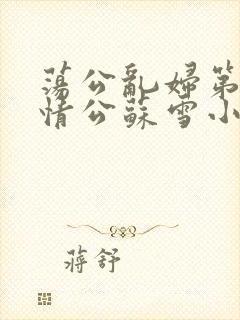 蕩公亂婦第
情公蘇雪小
蔣舒